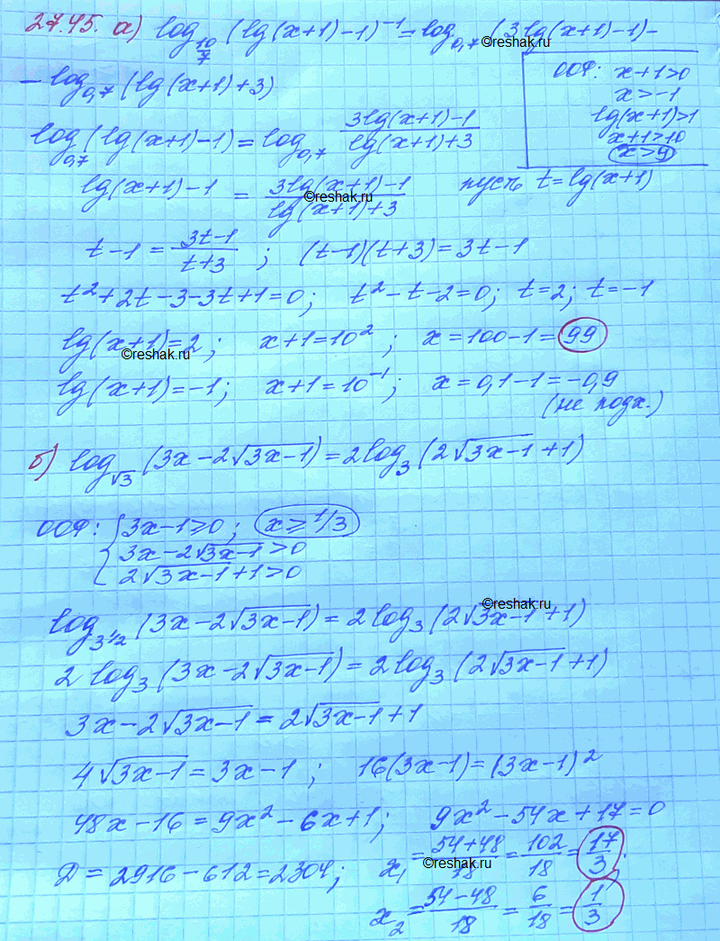 27.45. а) log_{10/7} (lg(x+1)-1)^{-1} = log_{0,7} (3lg(x+1)-1) -
©reshak.ru
- log_{0,7} (lg(x+1)+3)
ООФ: x+1>0
x>-1
lg(x+1)>1
x+1>10
x>9
log_{0,7} (lg(x+1)-1) = log_{0,7} \frac{3lg(x+1)-1}{lg(x+1)+3}
lg(x+1)-1 = \frac{3lg(x+1)-1}{lg(x+1)+3} пусть t=lg(x+1)
©reshak.ru
t-1 = \frac{3t-1}{t+3}; (t-1)(t+3)=3t-1
t²+2t-3-3t+1=0; t²-t-2=0; t=2; t=-1
lg(x+1)=2; x+1=10²; x=100-1=99
©reshak.ru
lg(x+1)=-1; x+1=10^{-1}; x=0,1-1=-0,9
(не подх.)
б) log_{√3} (3x-2√(3x-1)) = 2log_3 (2√(3x-1)+1)
ООФ: { 3x-1≥0; x≥1/3
3x-2√(3x-1)>0
2√(3x-1)+1>0
©reshak.ru
log_{3^{1/2}} (3x-2√(3x-1)) = 2log_3 (2√(3x-1)+1)
2 log_3 (3x-2√(3x-1)) = 2log_3 (2√(3x-1)+1)
3x-2√(3x-1) = 2√(3x-1)+1
4√(3x-1) = 3x-1; 16(3x-1)=(3x-1)²
48x-16=9x²-6x+1; 9x²-54x+17=0
Д=2916-612=2304; x_1=\frac{54+48}{18}=\frac{102}{18}=\frac{17}{3};
©reshak.ru
x_2=\frac{54-48}{18}=\frac{6}{18}=\frac{1}{3}